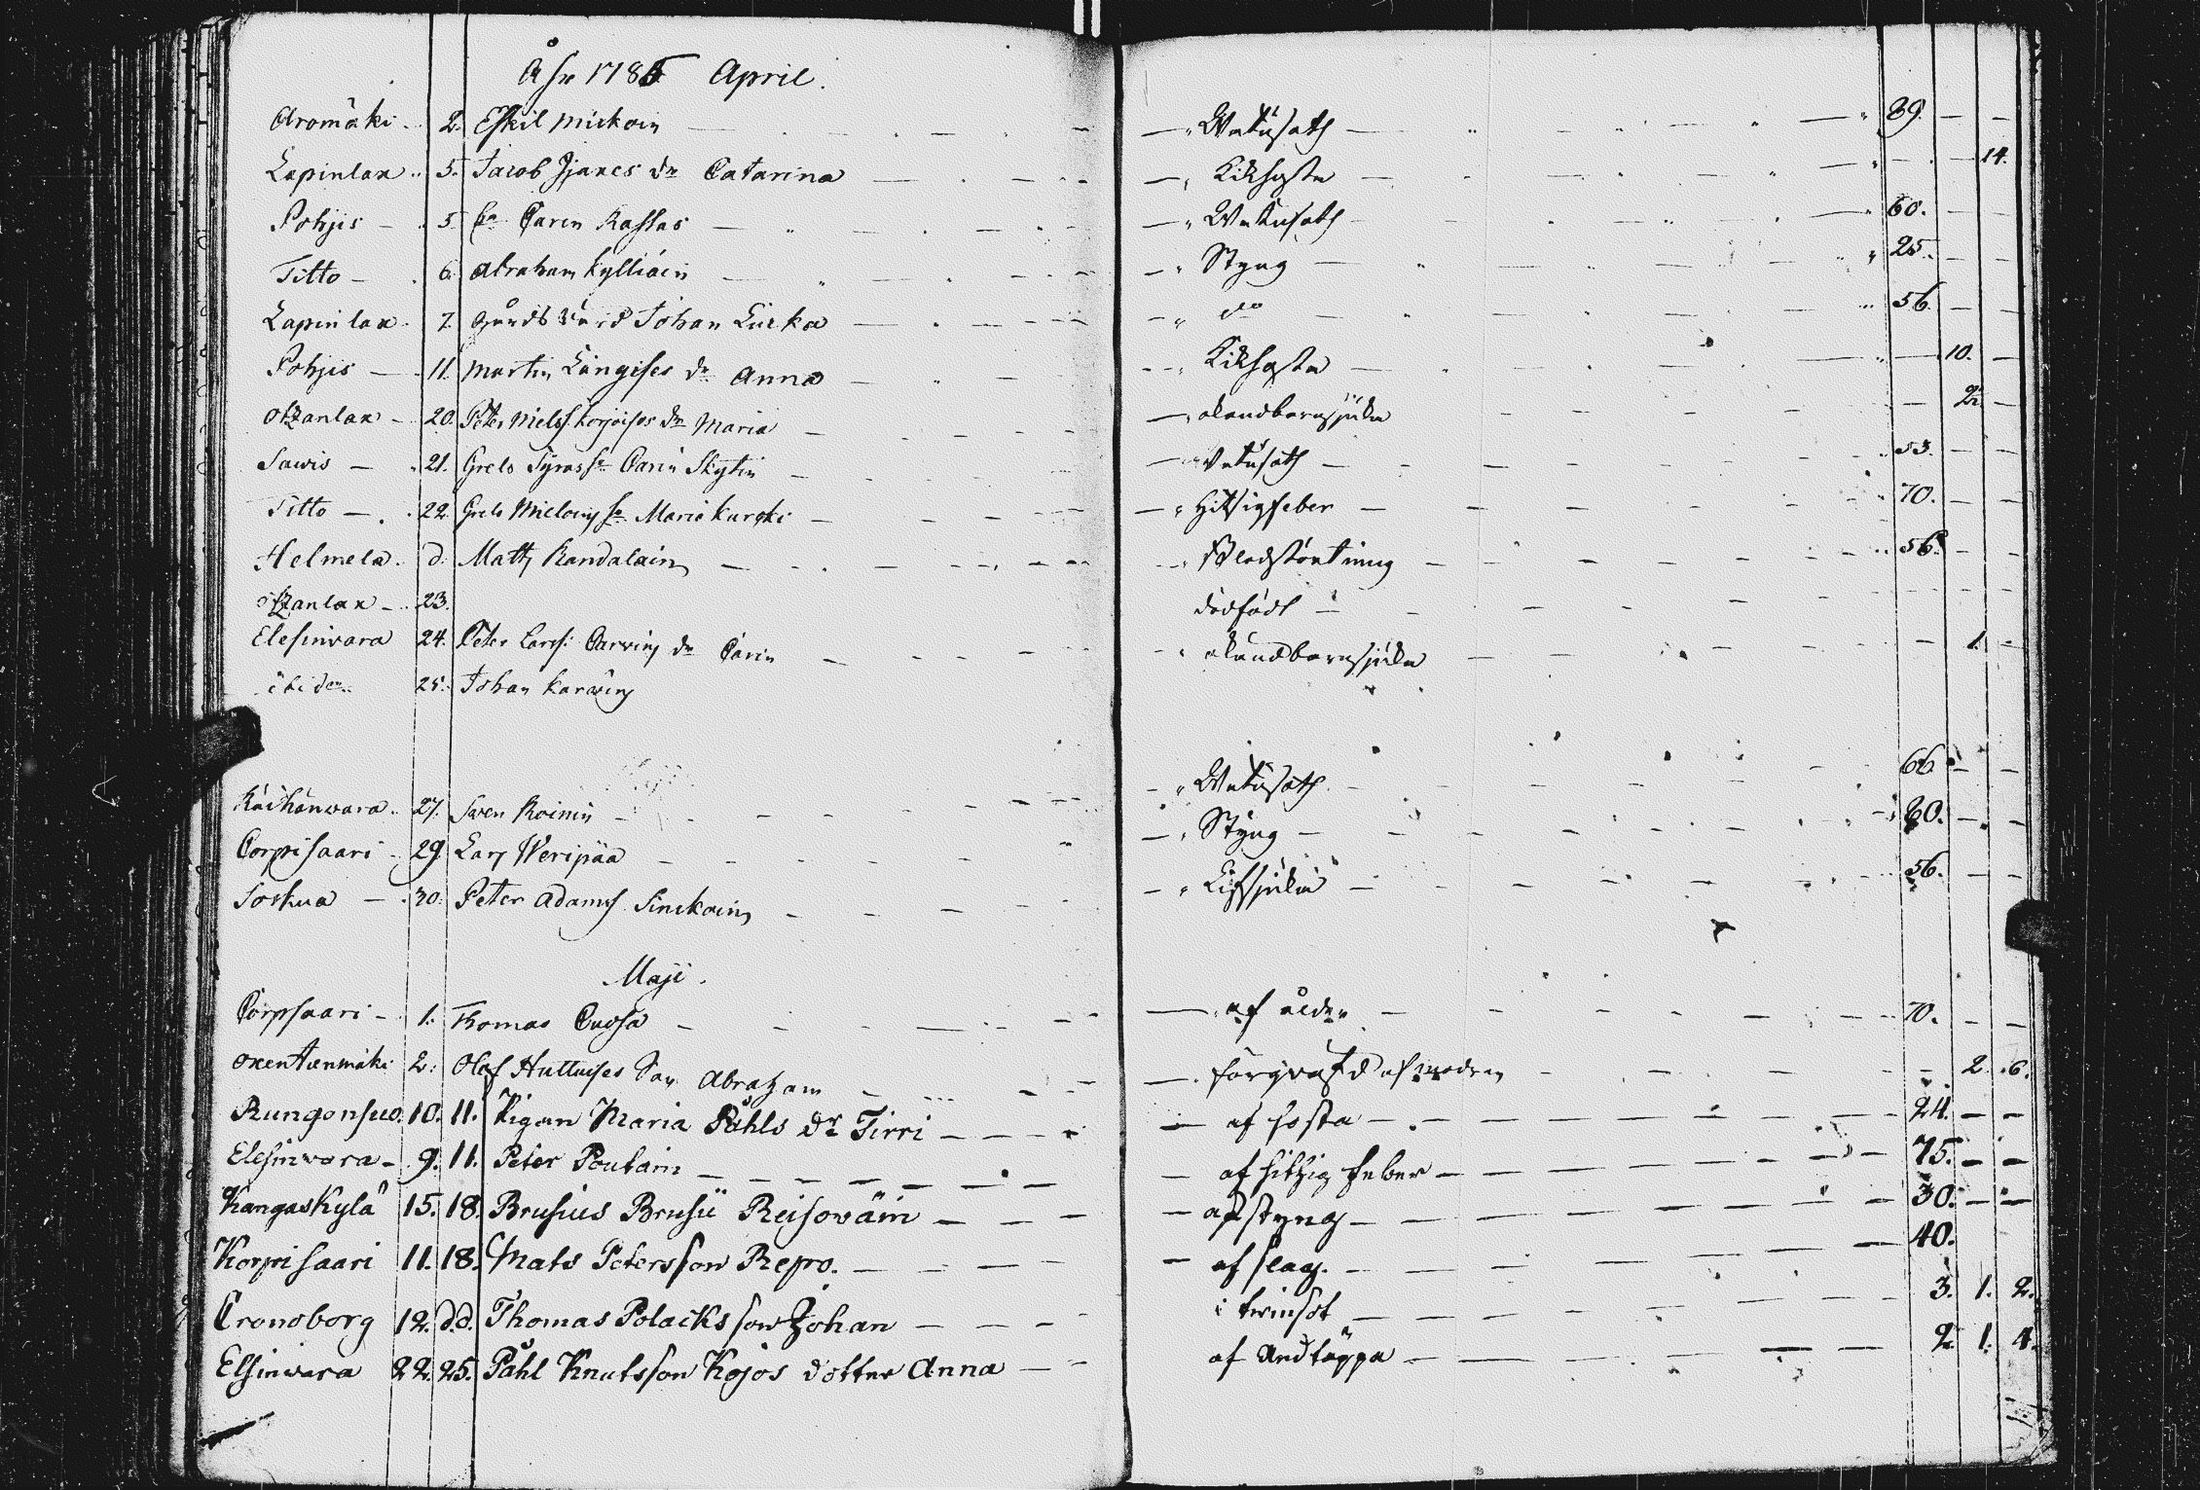 Åhr 1785 April.
Aromäki 2. Eskil Mickoin Watusoth 89.
Lapinlax 5. Jacob Ijäxes dr Catarina Kikhosta 14.
Pohjis 5. Carin Kassas Watusoth 60.
Titto 6. Abraham Kylliäin Styng 25.
Lapinlax 7. Johan Lucka do 56.
Pohjis 11. Martin Längises dr Anna Kikhosta 10.
Otzanlax 20. Peter Nielss. Korjoises dr Maria okändbarnsjuka 2.
Sawis 21. Grels Carin Skytin Watusoth 53.
Titto 22. Grels Maria Kurcki Hitsigfeber 70.
Helmela d. Matts Randalain Blodstörtning 56.
Otzanlax 23. dödfödt
Elesinwara 24. Peter Larss. Carwins dr Carin okändbarnsjuka 1.
ibidm 25. Johan Karwin
Käihänwara 27. Swen Roinin Watusoth 66
Corpisaari 29. Lars Weripää Styng 60.
Soskua 30. Peter Adamss. Sinckoin 56.
Maji.
Corpsaari 1. Thomas Cuosa af ålder 70.
Oxentienmäki 2. Olof Huttuises Son Abraham förqväfd af modren 2. 6.
Rungonsuo. 10. 11. Pigan Maria Påhls dr Tirri af hosta 24.
Elesinwara 9. 11. Peter Poutain af hitzig feber 75.
Kangaskylä 15. 18. Brusius Brusii Reisowäin af styng 30.
Korpisaari 11. 18. Mats Petersson Repo. af slag. 40.
Cronoborg 12. d.d. Thomas Polacks son Johan i twinsot 3. 1. 2.
Elsinwara 22. 25. Påhl Knutsson Kojos dotter Anna af Andtäppa 2. 1. 4.